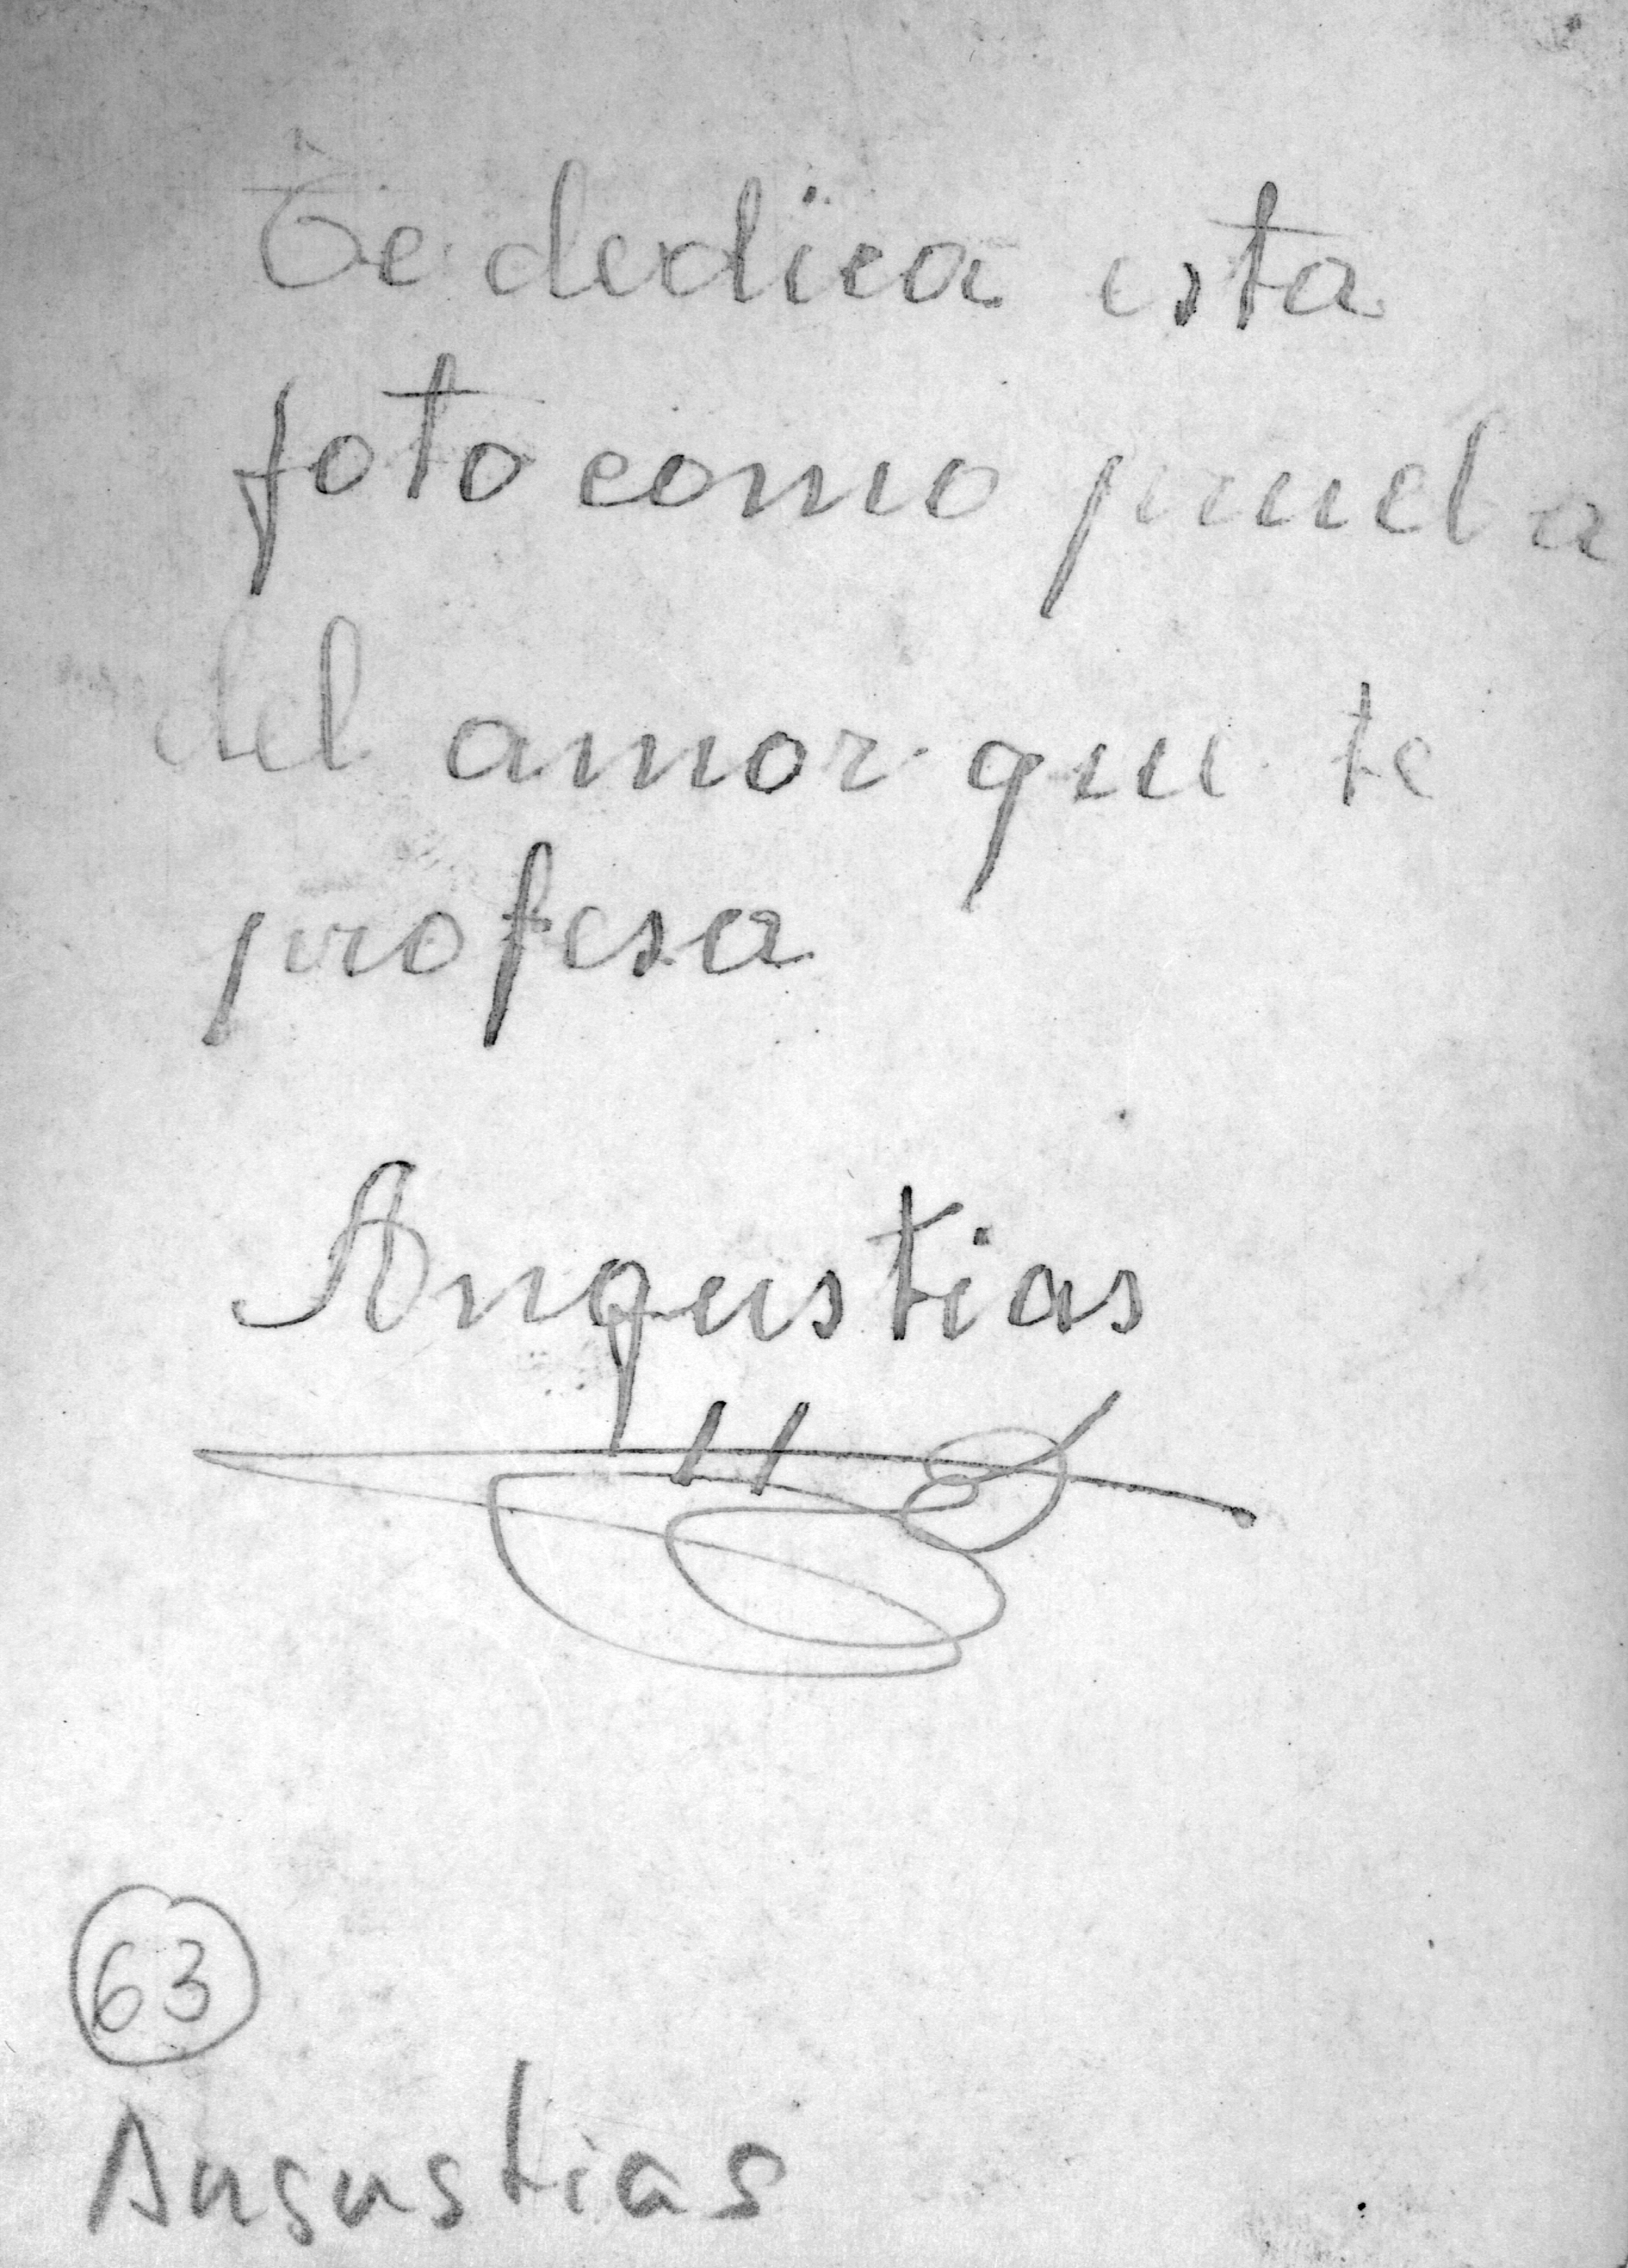 Te dedica esta
foto como prueba
del amor que te
profesa
Angustias
63
Angustias